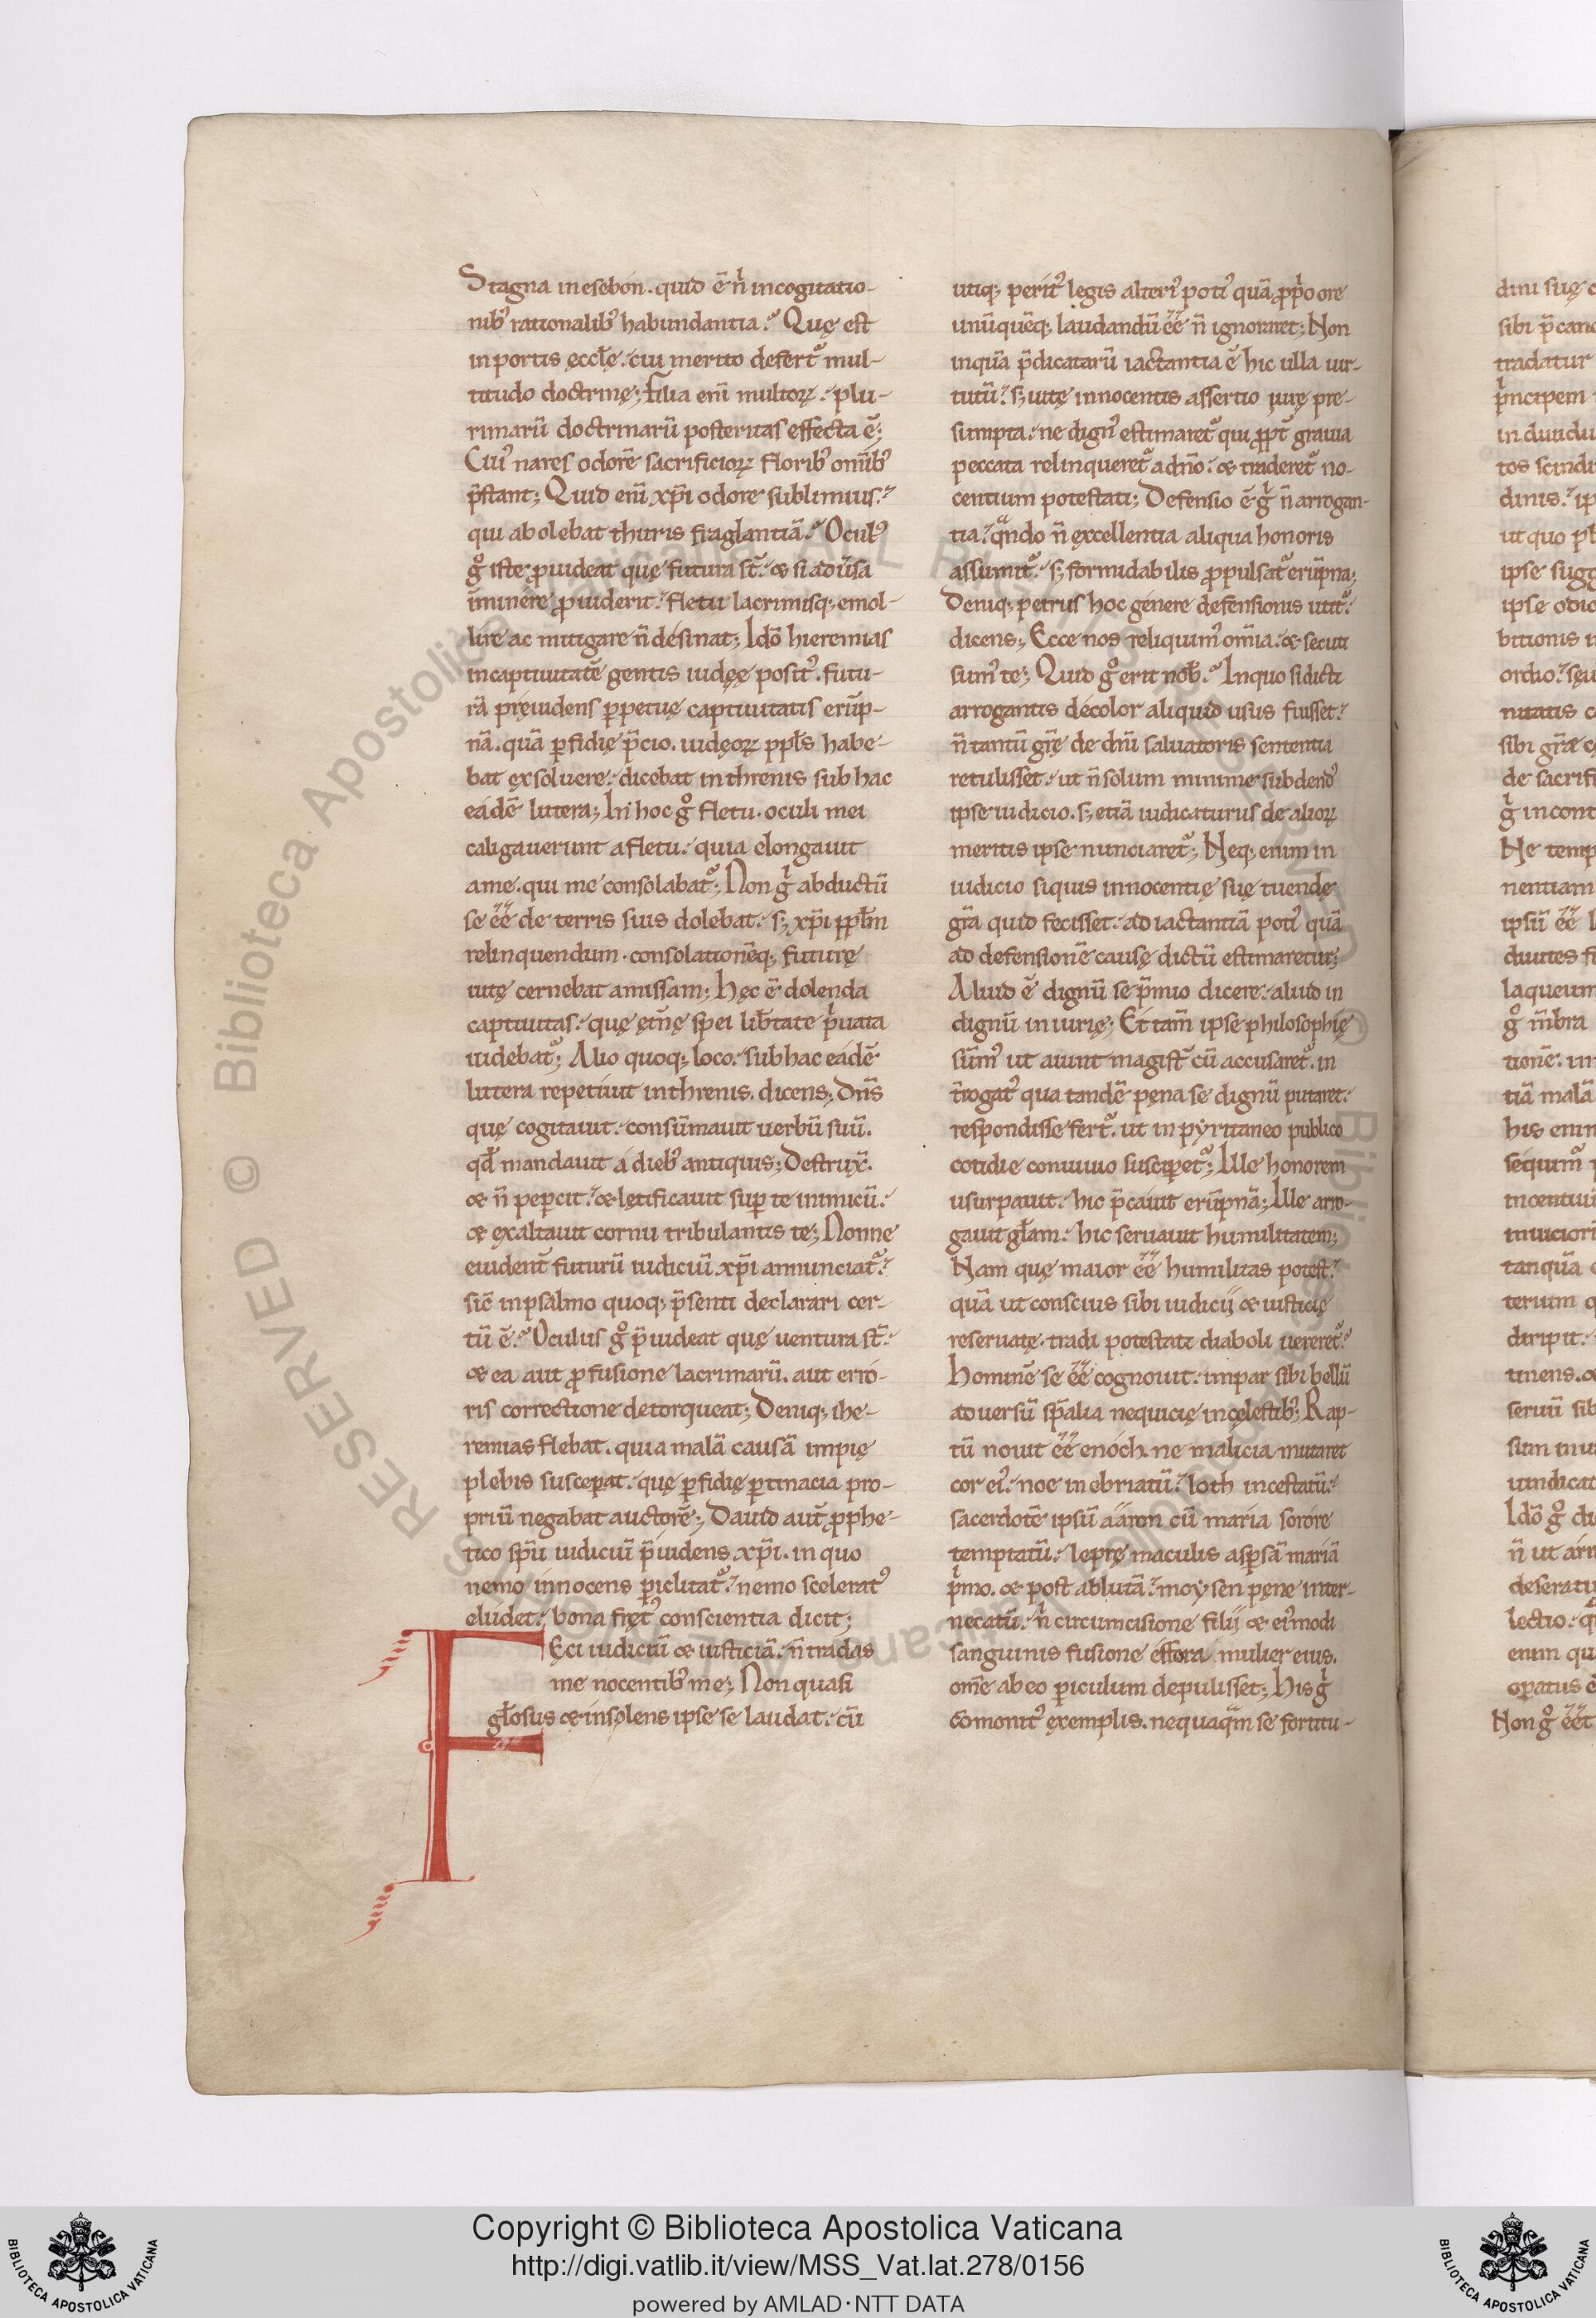 Stagna in esebón. quid ē n̄ in cogitatio-
nib; rationalib; habundantia? Quę est
in portis ęccłę. cui merito defert᷒ mul-
titudo doctrinę; filia eni multoꝝ. plu-
rimarū doctrinarū posteritas effecta ē;
Cui᷒ nares odorē sacrificioꝝ florib; omib;
p̄stant; Quid eni xp̄i odore sublimius?
qui abolebat thuris fraglantiā? Ocul᷒
gͦ iste ꝓuideat quę futura st̄. & si aduersa
īminere ꝓuiderit. fletu lacrimisq; emol-
lire ac mitigare n̄ désinat; Idō hieremias
in captiuitatē gentis iudęę posit᷒. futu-
rā pręuidens ꝑpetuę captiuitatis erūp-
nā. quā ꝑfidię p̄cio. iudęoꝝ pp̄ls habe-
bat exsoluere. dicebat in threnis sub hac
eádē littera; In hoc gͦ fletu. oculi mei
caligauerunt a fletu. quia elongauit
a me. qui me consolabat᷒; Non gͥ abductū
se ēē de terris suis dolebat. s; xp̄i ppłm
relinquendum. consolationēq; futurę
uitę cernebat amissam; Hęc ē dolenda
captiuitas. quę etn̄ę spei lib̄tate pͥuata
uidebat᷒; Alio quoq; loco. sub hac eádē
littera repetiuit in threnis. dicens; Dn̄s
quę cogitauit. consūmauit uerbū suū.
qđ mandauit á dieb; antiquis; Destrux̄.
& n̄ peꝑcit. & lętificauit suꝑ te inimicū.
& exaltauit cornu tribulantis te; Nonne
euident̄ futurū iudiciū xp̄i annunciat᷒?
sic̄ in psalmo quoq; p̄senti declarari cer-
tū ē? Oculus gͦ p̄uideat quę uentura st̄.
& ea aut ꝓfusione lacrimarū. aut erró-
ris correctione detorqueat; Deniq; ihe-
remias flebat. quia malā causā impię
plebis susceꝑat. quę ꝑfidię ꝑtinacia pro-
priū negabat auctorē; Dauid aut̄ ꝓphe-
tico sp̄u iudiciū p̄uidens xp̄i. in quo
nemo innocens ꝑiclitat᷒. nemo scelerat᷒
elúdet. bona fręt᷒ conscientia dicit;
Fęci iudiciū & iusticiā. n̄ tradas
me nocentib; me; Non quasi
głosus & insolens ipse se laudat. cū
utiq; perit᷒ legis alteri᷒ poti᷒ quā ꝓpͥo ore
unūquēq; laudandū ēē n̄ ignoraret; Non
inquā p̄dicatarū iactantia ē hic ulla uir-
tutū. s; uitę innocentis assertio iurę pre-
sumpta. ne dign᷒ estimaret᷒ qui ꝓpt̄ grauia
peccata relinqueret᷒ a dn̄o. & traderet᷒ no-
centium potestati; Defensio ē gͥ n̄ arrogan-
tia. qͣndo n̄ excellentia aliqua honoris
assumit᷒. s; formidabilis ꝓpulsat᷒ erūpna;
Deniq; petrus hoc génere defensionis utit᷒.
dicens; Ecce nos reliquim᷒ om̄ia. & secuti
sum᷒ te; Quid gͦ erit nob̄? In quo si dicti
arrogantis décolor aliquid usus fuisset.
n̄ tantū grę̄ de dn̄i saluatoris sententia
retulisset. ut n̄ solum minime subdend᷒
ipse iudicio. s; etiā iudicaturus de alioꝝ
meritis ipse nunciaret᷒; Neq; enim in
iudicio siquis innocentię suę tuendę
gr̄a quid fecisset. ad iactantiā poti᷒ quā
ad defensionē causę dictū estimaretur;
Aliud ē dignū se p̄mio dicere. aliud in
dignū iniurię; Et tam̄ ipse philosophię
sūm᷒ ut aiunt magist̄ cū accusaret᷒. in
t̄rogat᷒ qua tandē pęna se dignū putaret.
respondisse fert᷒. ut in pyritaneo publico
cotidie conuiuio susciꝑet᷒; Ille honorem
usurpauit. hic p̄cauit erūpnā; Ille arro-
gauit głam. hic seruauit humilitatem;
Nam quę maior ēē humilitas potest.
quā ut conscius sibi iudicij & iusticię
reseruatę. tradi potestati diaboli uereret᷒?
Hominē se ēē cognouit. impar sibi bellū
aduersū sp̄alia nequicię in cęlestib; Rap-
tū nouit ēē enóch. ne malicia mutaret
cor ei᷒. noe inebriatū. loth incestatū.
sacerdotē ipsū aáron cū maria soróre
temptatū. leprę maculis asꝑsā mariā
pͥmo. & post ablutā. moysen pęne inter-
necatū. nͥ circumcisione filij & ei᷒modi
sanguinis fusione éffora mulier eius.
om̄e ab eo ꝑiculum depulisset; His gͥ
cōmonit᷒ exemplis. nequaqͣm se fortitu-
Copyright © Biblioteca Apostolica Vaticana
http://digi.vatlib.it/view/MSS_Vat.lat.278/0156
powered by AMLAD·NTT DATA